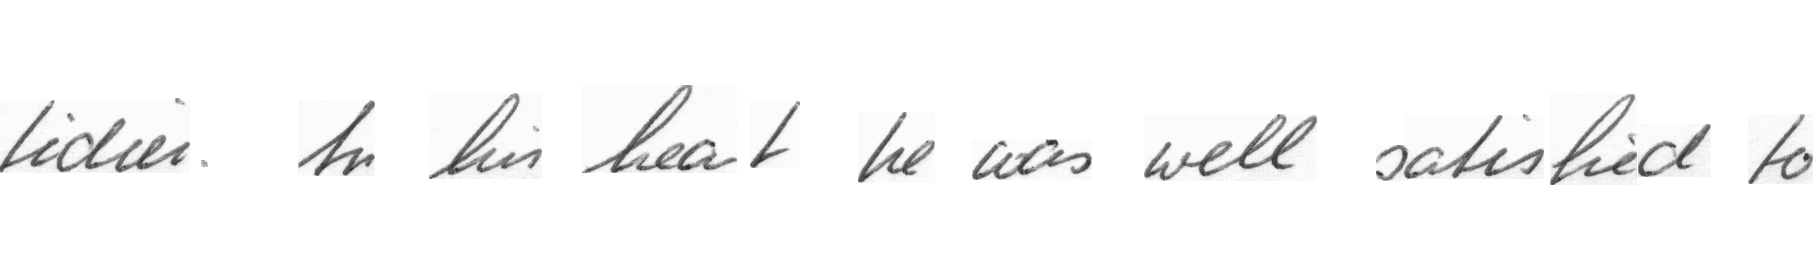 tidier. In his heart he was well satisfied to